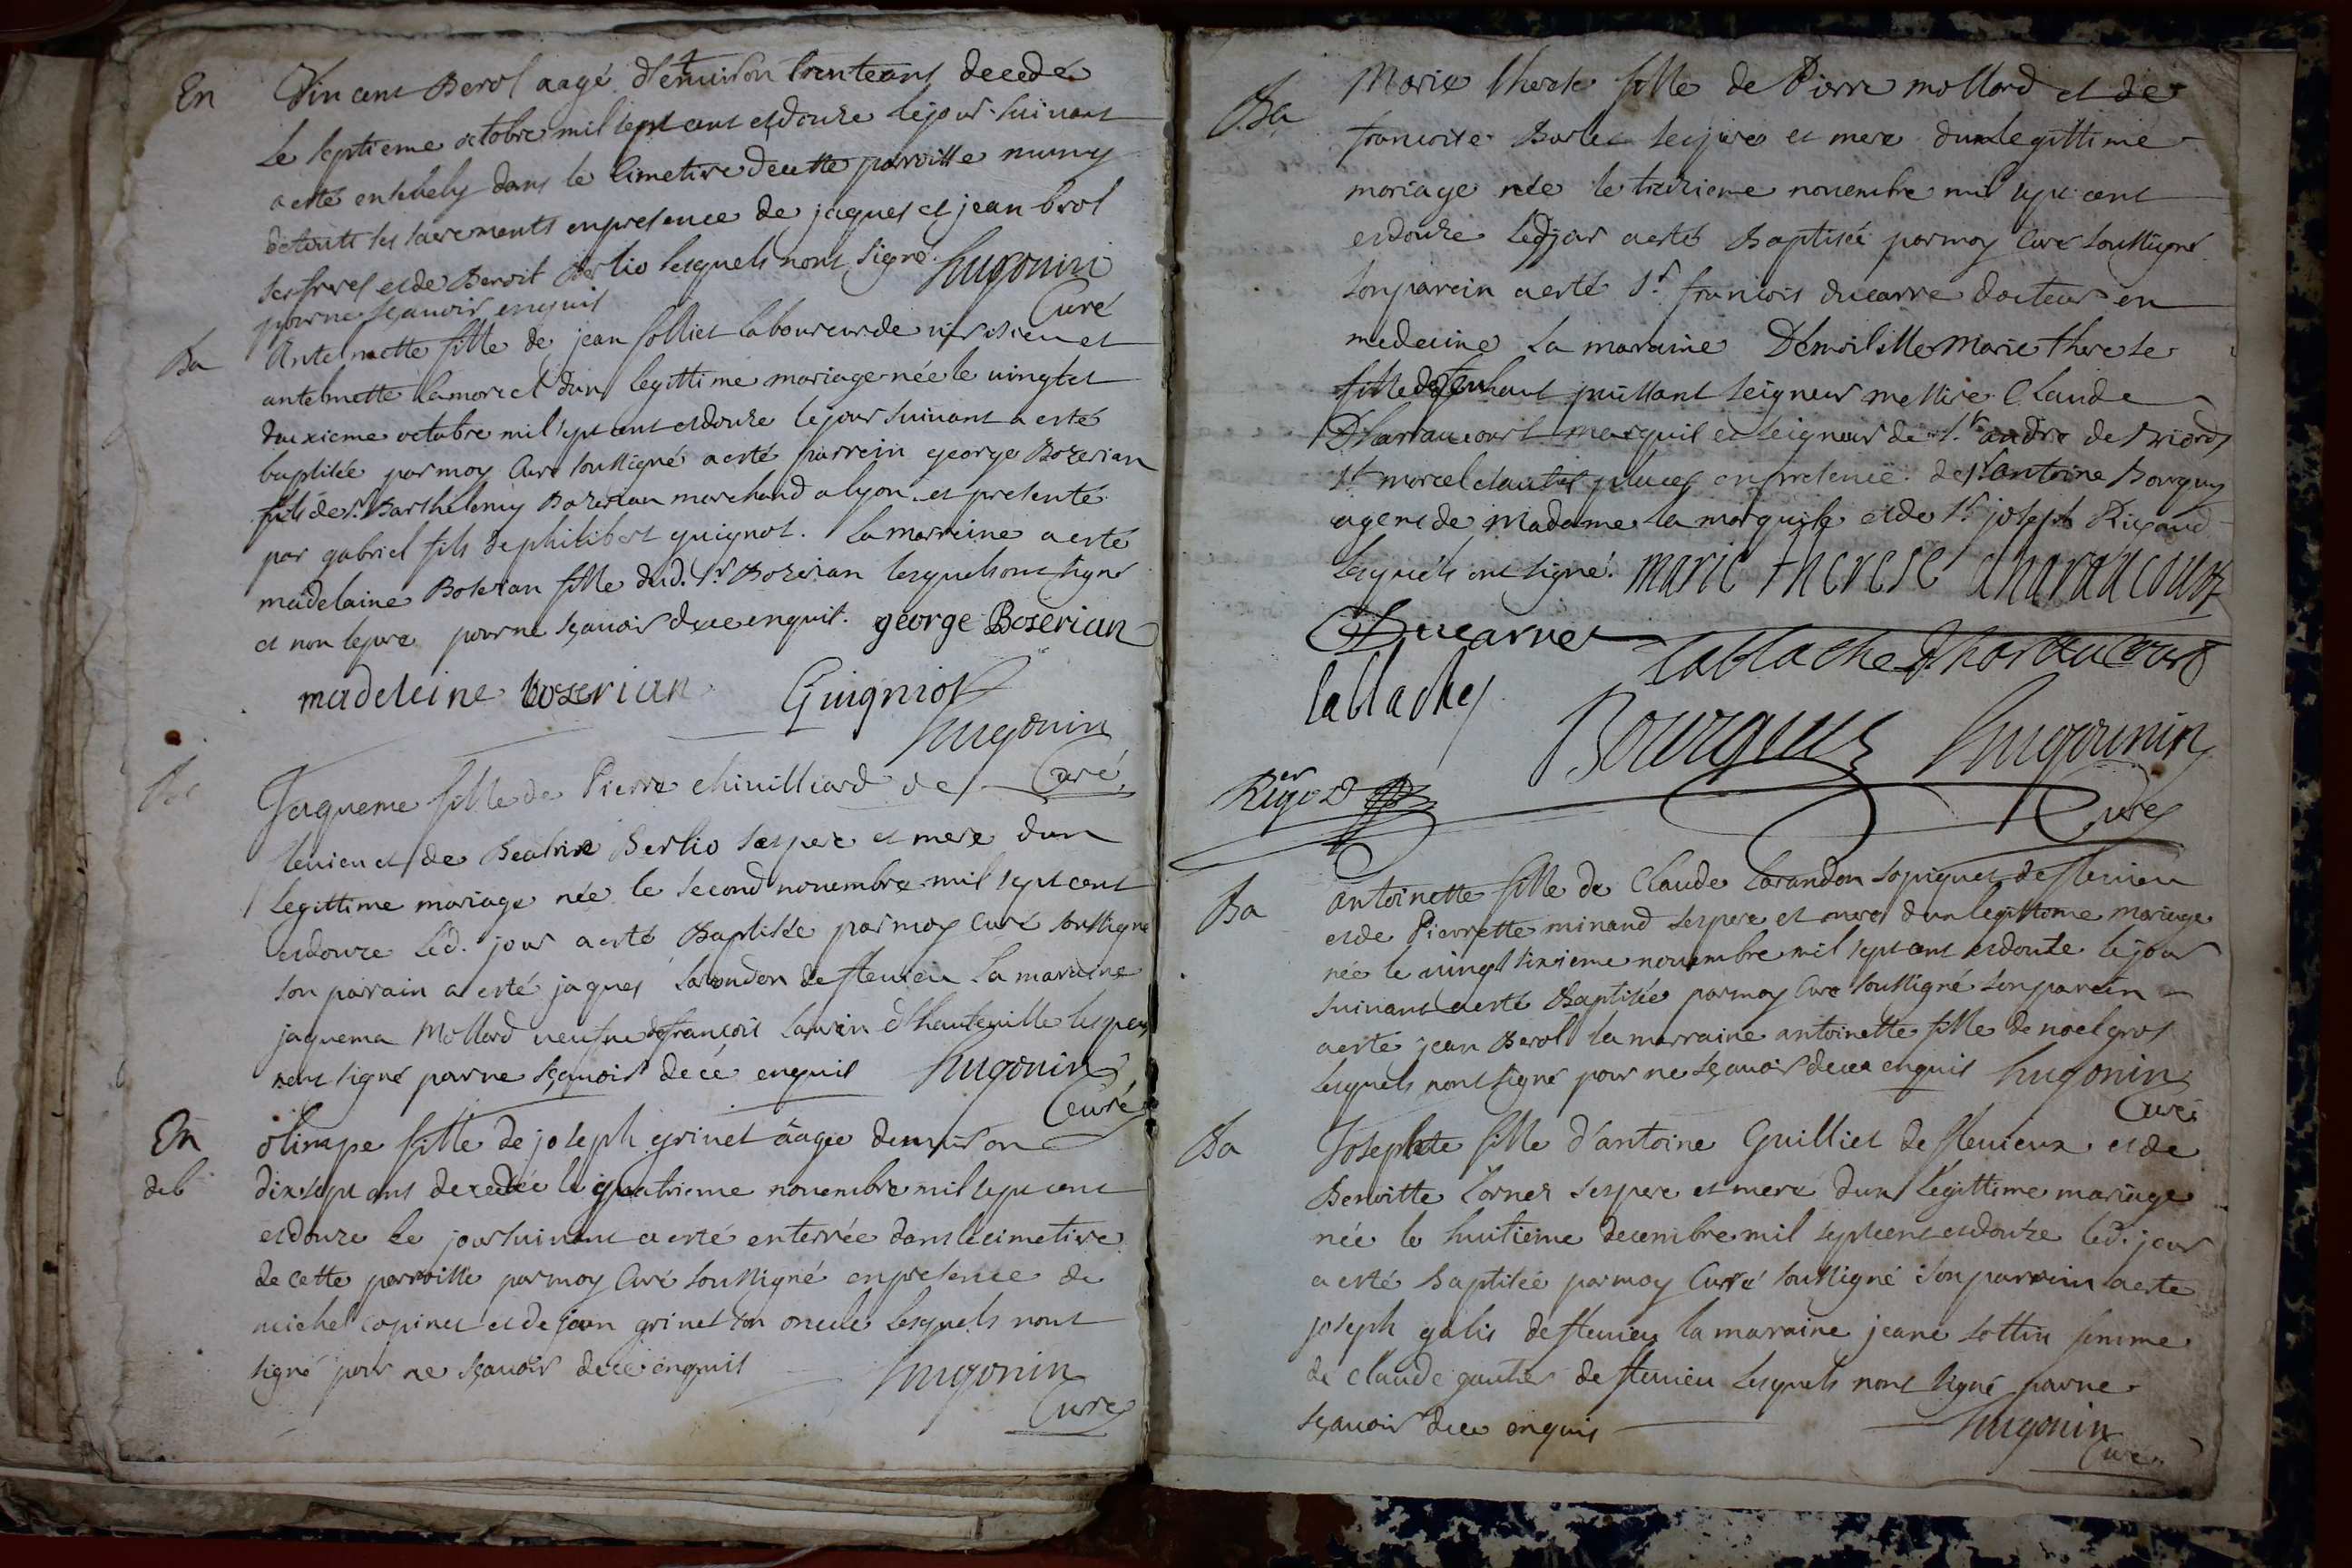 En Vincent Berol aagé d'environ trente ans decedé
le septieme octobre mil sept cent et douze le jour suivant
a esté ensevely dans le cimetiere de cette parroisse muny
de touts les sacrements en presence de jaques et jean brol
ses freres et de Benoit Berlio lesquels n'ont signé Hugonin
pour ne sçavoir enquis Curé
Ba Antelmette fille de jean folliet laboureur de et
antelmette lamorel d'un legittime mariage née le vingtet
deuxieme octobre mil sept cent et douze le jour suivant a esté
baptisée par moy Curé soussigné a esté parrein george Bozerian
fils de Sr. Barthelemy Bozerian marchand a lyon et presenté
par gabriel fils de philibert guignot. La marreine a esté
madelaine Boserian fille dud. Sr. Bozerian lesquels ont signé
et non le pere pour ne sçavoir de ce enquit. george Boserian
madeleine boserian Guigniot
Hugonin
Jaqueme fille de Pierre chivilliard de Curé
et de Beatrix Berlio ses pere et mere d'un
legittime mariage née le second novembre mil sept cent
et douze led. jour a esté Baptisée par moy Curé soussigné
son parain a esté jaques Larendon de flevieu la maraine
jaquema Mollard veufve de françois d'hauteville lesquels
nont signé par ne sçavoir de ce enquis Hugonin
Curé
En olimpe fille de joseph grinet âagée denviron
deb dix sept ans decedée le quatrieme novembre mil sept cent
et douze le jour suivant a esté enterrée dans le cimetiere
de cette parroisse par moy Curé soussigné en presence de
michel copinet et de jean grinet son oncle lesquels nont
signé pour ne sçavoir de ce enquis Hugonin
Curé
Ba Marie therese fille de Pierre mollard et de
francoise Borlet ses pere et mere d'un legittime
mariage née le treizieme novembre mil sept cent
et douze led jour a esté Baptisée par moy Curé soussigné
son parein a esté Sr. francois ducarre docteur en
medecine la maraine Demoiselle Marie therese
fille de feu haut puissant seigneur messire Claude
D'haraucourt marquis et seigneur de St. andre de Briord
St. marcel et autres places en presence de Sr. antoine Bourguy
agent de Madame la marquise et de Sr. joseph Rigaud
lesquels ont signé. marie therese dharaucourt
Ducarre lablache d'haraucourt
lablache
Bourguy Hugonin
Curé
Ba antoinette fille de Claude Larandon de flevieu
et de Pierrette minand ses pere et mere d'un legittime mariage
née le vingt sixieme novembre mil sept cent et douze le jour
suivant a esté Baptisée par moy Curé soussigné son parein
a esté jean Berol la marraine antoinette fille de noel gros
lesquels nont signé pour ne sçavoir de ce enquis Hugonin
Curé
Ba Josephte fille d'antoine Guilliet de flevieux et de
Benoitte Cornet ses pere et mere d'un legittime mariage
née le huitieme decembre mil sept cent et douze led. jour
a esté Baptisée par moy Curé soussigné son parrein a esté
joseph galis de flevieu la maraine jeane sottin femme
de claude gautier de flevieu lesquels nont signé par ne
sçavoir de ce enquis Hugonin
Curé